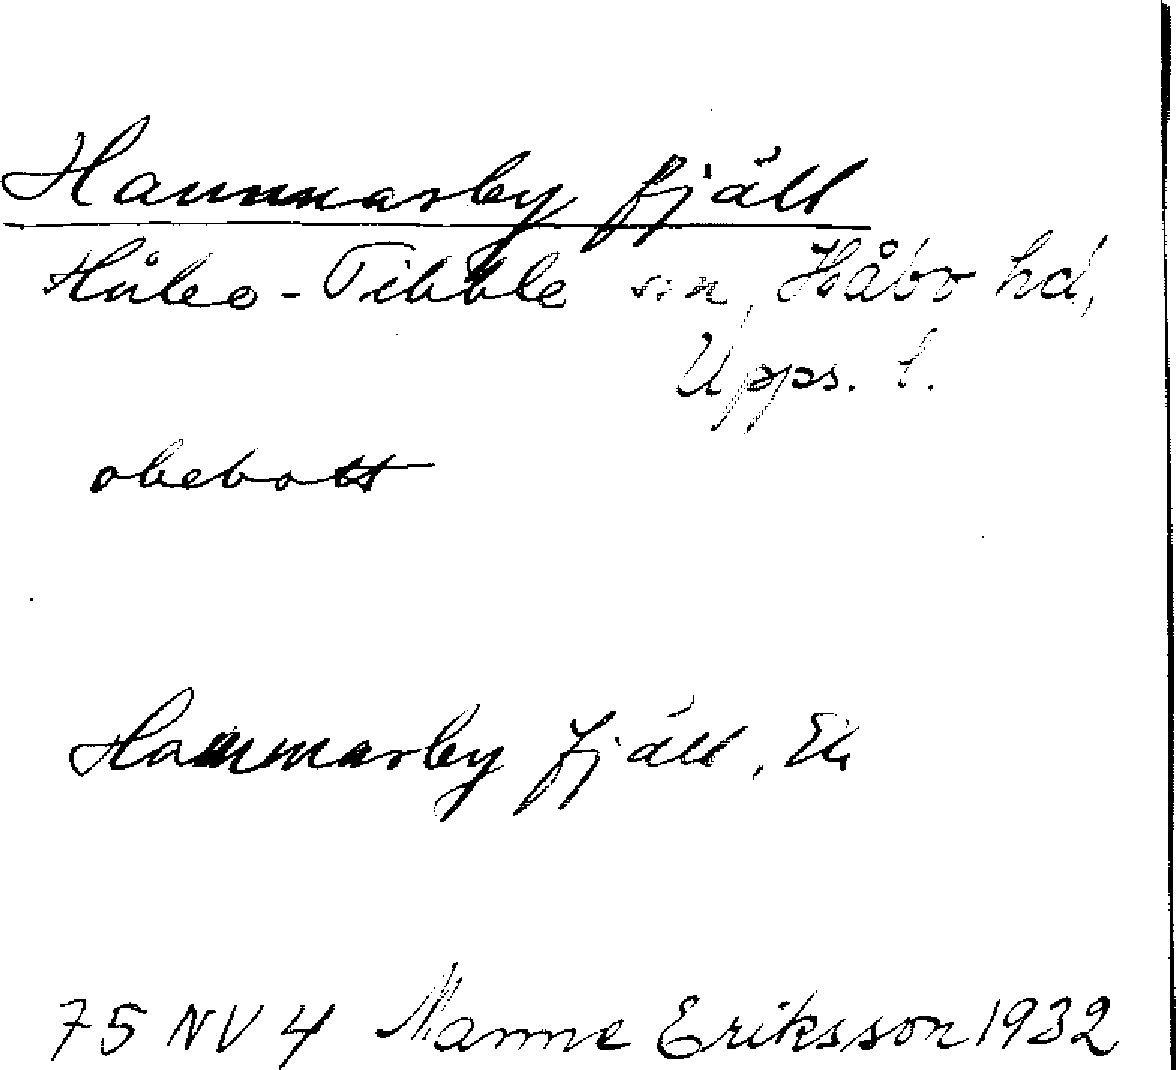 Hammarby fjäll
Håbo-Tibble sn, Håbo hd,
Upps. l.
obebott
Hammarby fjäll, Ek
75 NV 4 Manne Eriksson 1932